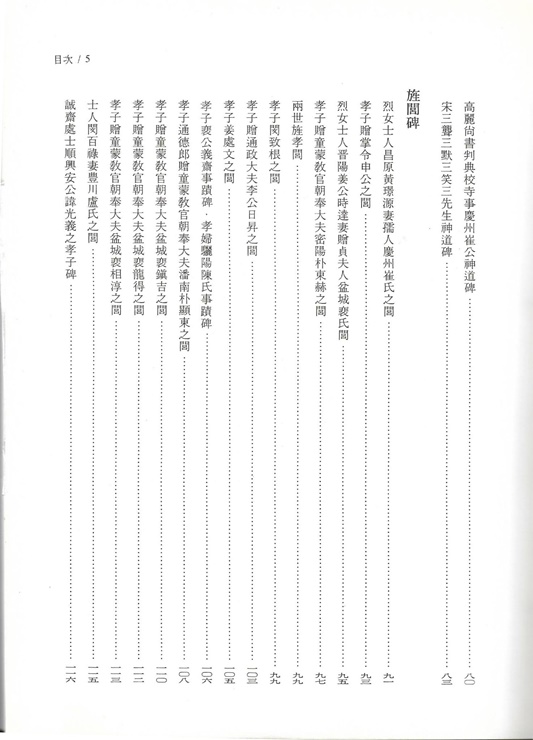 目次 / 5
高麗尙書判典校寺事慶州崔公神道碑 八〇
宋三聾三默三笑三先生神道碑 八三
旌閭碑
烈女士人昌原黃璟源妻孺人慶州崔氏之閭 九一
孝子贈掌令申公之閭 九三
烈女士人晋陽姜公時達妻贈貞夫人盆城裵氏閭 九五
孝子贈童蒙敎官朝奉大夫密陽朴東赫之閭 九七
兩世旌孝閭 九九
孝子閔致根之閭 九九
孝子贈通政大夫李公日昇之閭 一〇三
孝子姜處文之閭 一〇五
孝子裵公義齋事蹟碑 孝婦驪陽陳氏事蹟碑 一〇六
孝子通德郎贈童蒙敎官朝奉大夫潘南朴顯東之閭 一〇八
孝子贈童蒙敎官朝奉大夫盆城裵鎭吉之閭 一一〇
孝子贈童蒙敎官朝奉大夫盆城裵龍得之閭 一一二
孝子贈童蒙敎官朝奉大夫盆城裵相淳之閭 一一三
士人閔百祿妻豊川盧氏之閭 一一五
誠齋處士順興安公諱光義之孝子碑 一一六